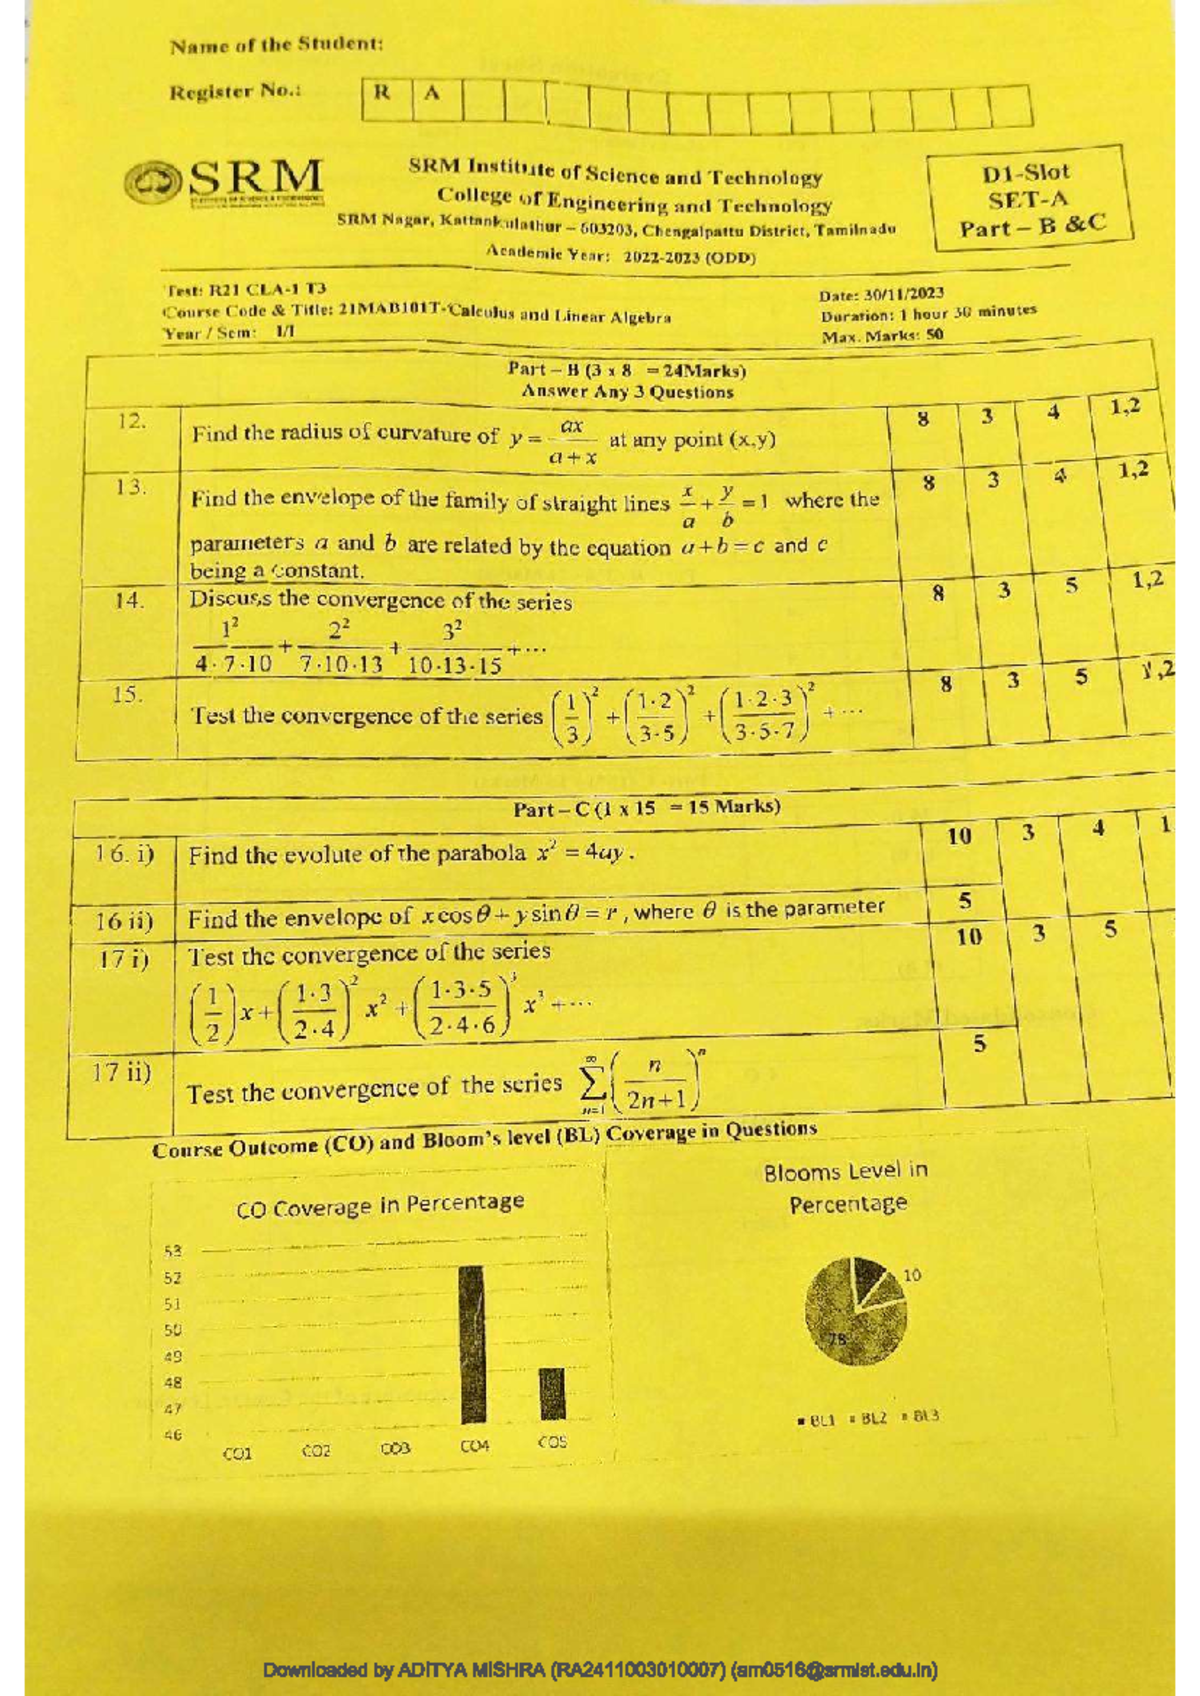 Name of the Student:
Register No.: R A
SRM
SRM Institute of Science and Technology
College of Engineering and Technology
SRM Nagar, Kattankulathur – 603203, Chengalpattu District, Tamilnadu
Academic Year: 2022-2023 (ODD)
D1-Slot
SET-A
Part – B &C
Test: R21 CLA-1 T3
Course Code & Title: 21MAB101T-Calculus and Linear Algebra
Year / Sem: I/I
Date: 30/11/2023
Duration: 1 hour 30 minutes
Max. Marks: 50
Part – B (3 x 8 = 24Marks)
Answer Any 3 Questions
12. Find the radius of curvature of y = ax/(a+x) at any point (x,y) 8 3 4 1,2
13. Find the envelope of the family of straight lines x/a + y/b = 1 where the 8 3 4 1,2
parameters a and b are related by the equation a+b=c and c
being a constant.
14. Discuss the convergence of the series 8 3 5 1,2
1²/(4·7·10) + 2²/(7·10·13) + 3²/(10·13·15) + ···
15. Test the convergence of the series (1/3)² + (1·2/3·5)² + (1·2·3/3·5·7)² + ··· 8 3 5 1,2
Part – C (1 x 15 = 15 Marks)
16. i) Find the evolute of the parabola x² = 4ay. 10 3 4 1
16 ii) Find the envelope of x cos θ + y sin θ = r, where θ is the parameter 5
17 i) Test the convergence of the series 10 3 5
(1/2)x + (1·3/2·4)² x² + (1·3·5/2·4·6)³ x³ + ···
17 ii) Test the convergence of the series ∑ n=1 ∞ (n/(2n+1))ⁿ 5
Course Outcome (CO) and Bloom's level (BL) Coverage in Questions
CO Coverage in Percentage
53
52
51
50
49
48
47
46
CO1 CO2 CO3 CO4 CO5
Blooms Level in
Percentage
10
78
BL1 BL2 BL3
Downloaded by ADITYA MISHRA (RA2411003010007) (am0516@srmist.edu.in)